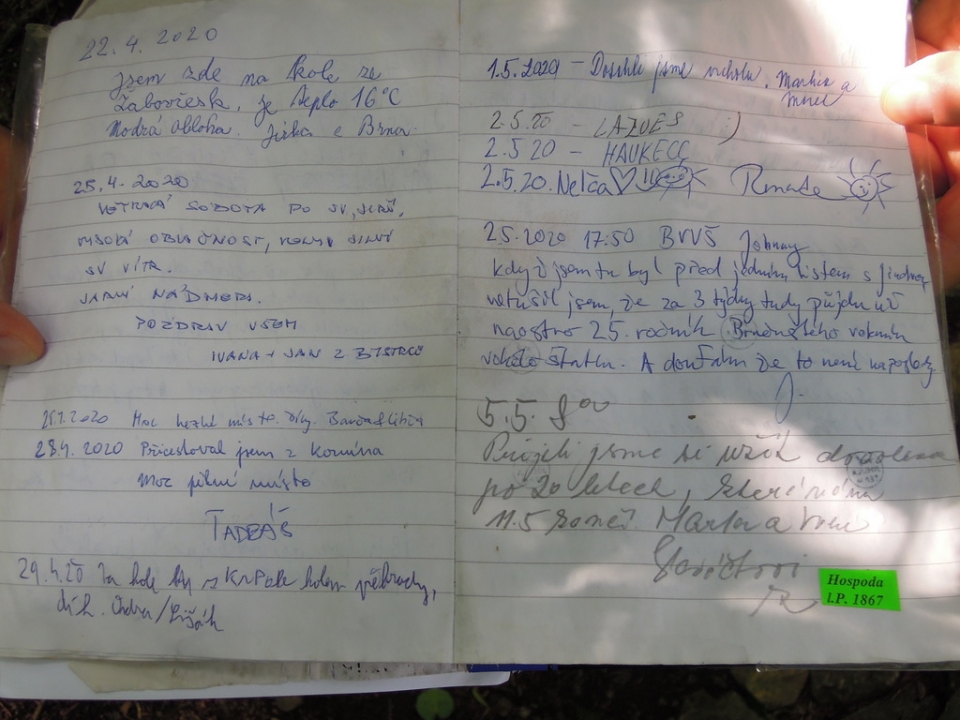 22.4.2020
jsem zde na kole ze
Žabovřesk, je teplo 16°C
Modrá obloha. Jirka z Brna.
25.4.2020
VĚTRNÁ SOBOTA PO SV. JIŘÍ,
VYSOKÁ OBLAČNOST, SILNÝ
SV VÍTR.
JARNÍ NÁDHERA.
POZDRAV VŠEM
IVANA + JAN Z BYSTRCE
2020 Moc hezké místo. díky.
28.4. 2020 Přicestoval jsem z Komína
Moc pěkné místo
TADEÁŠ
29.4.20 Na kole kolem přehrady,
dík. Ondra/Lišák
1.5.2020 – Došli jsme vrcholu. Martin a
2.5.20 – LAZUES :)
2.5.20 – HAUKECC
2.5.20. Nelča Renate
2.5.2020 17:50 BVVŠ Johnny
Když jsem tu byl před jedním listem s Jindrou,
netušil jsem, že za 3 týdny tudy půjdu už
naostro 25. ročník Brněnského
vokolo štatlu. A doufám že to není naposledy
J.
5.5. 8⁰⁰
Přijeli jsme si užít dovolenou
po 20 letech, která nám
11.5 končí. Marta a
Hospoda
l.P. 1867